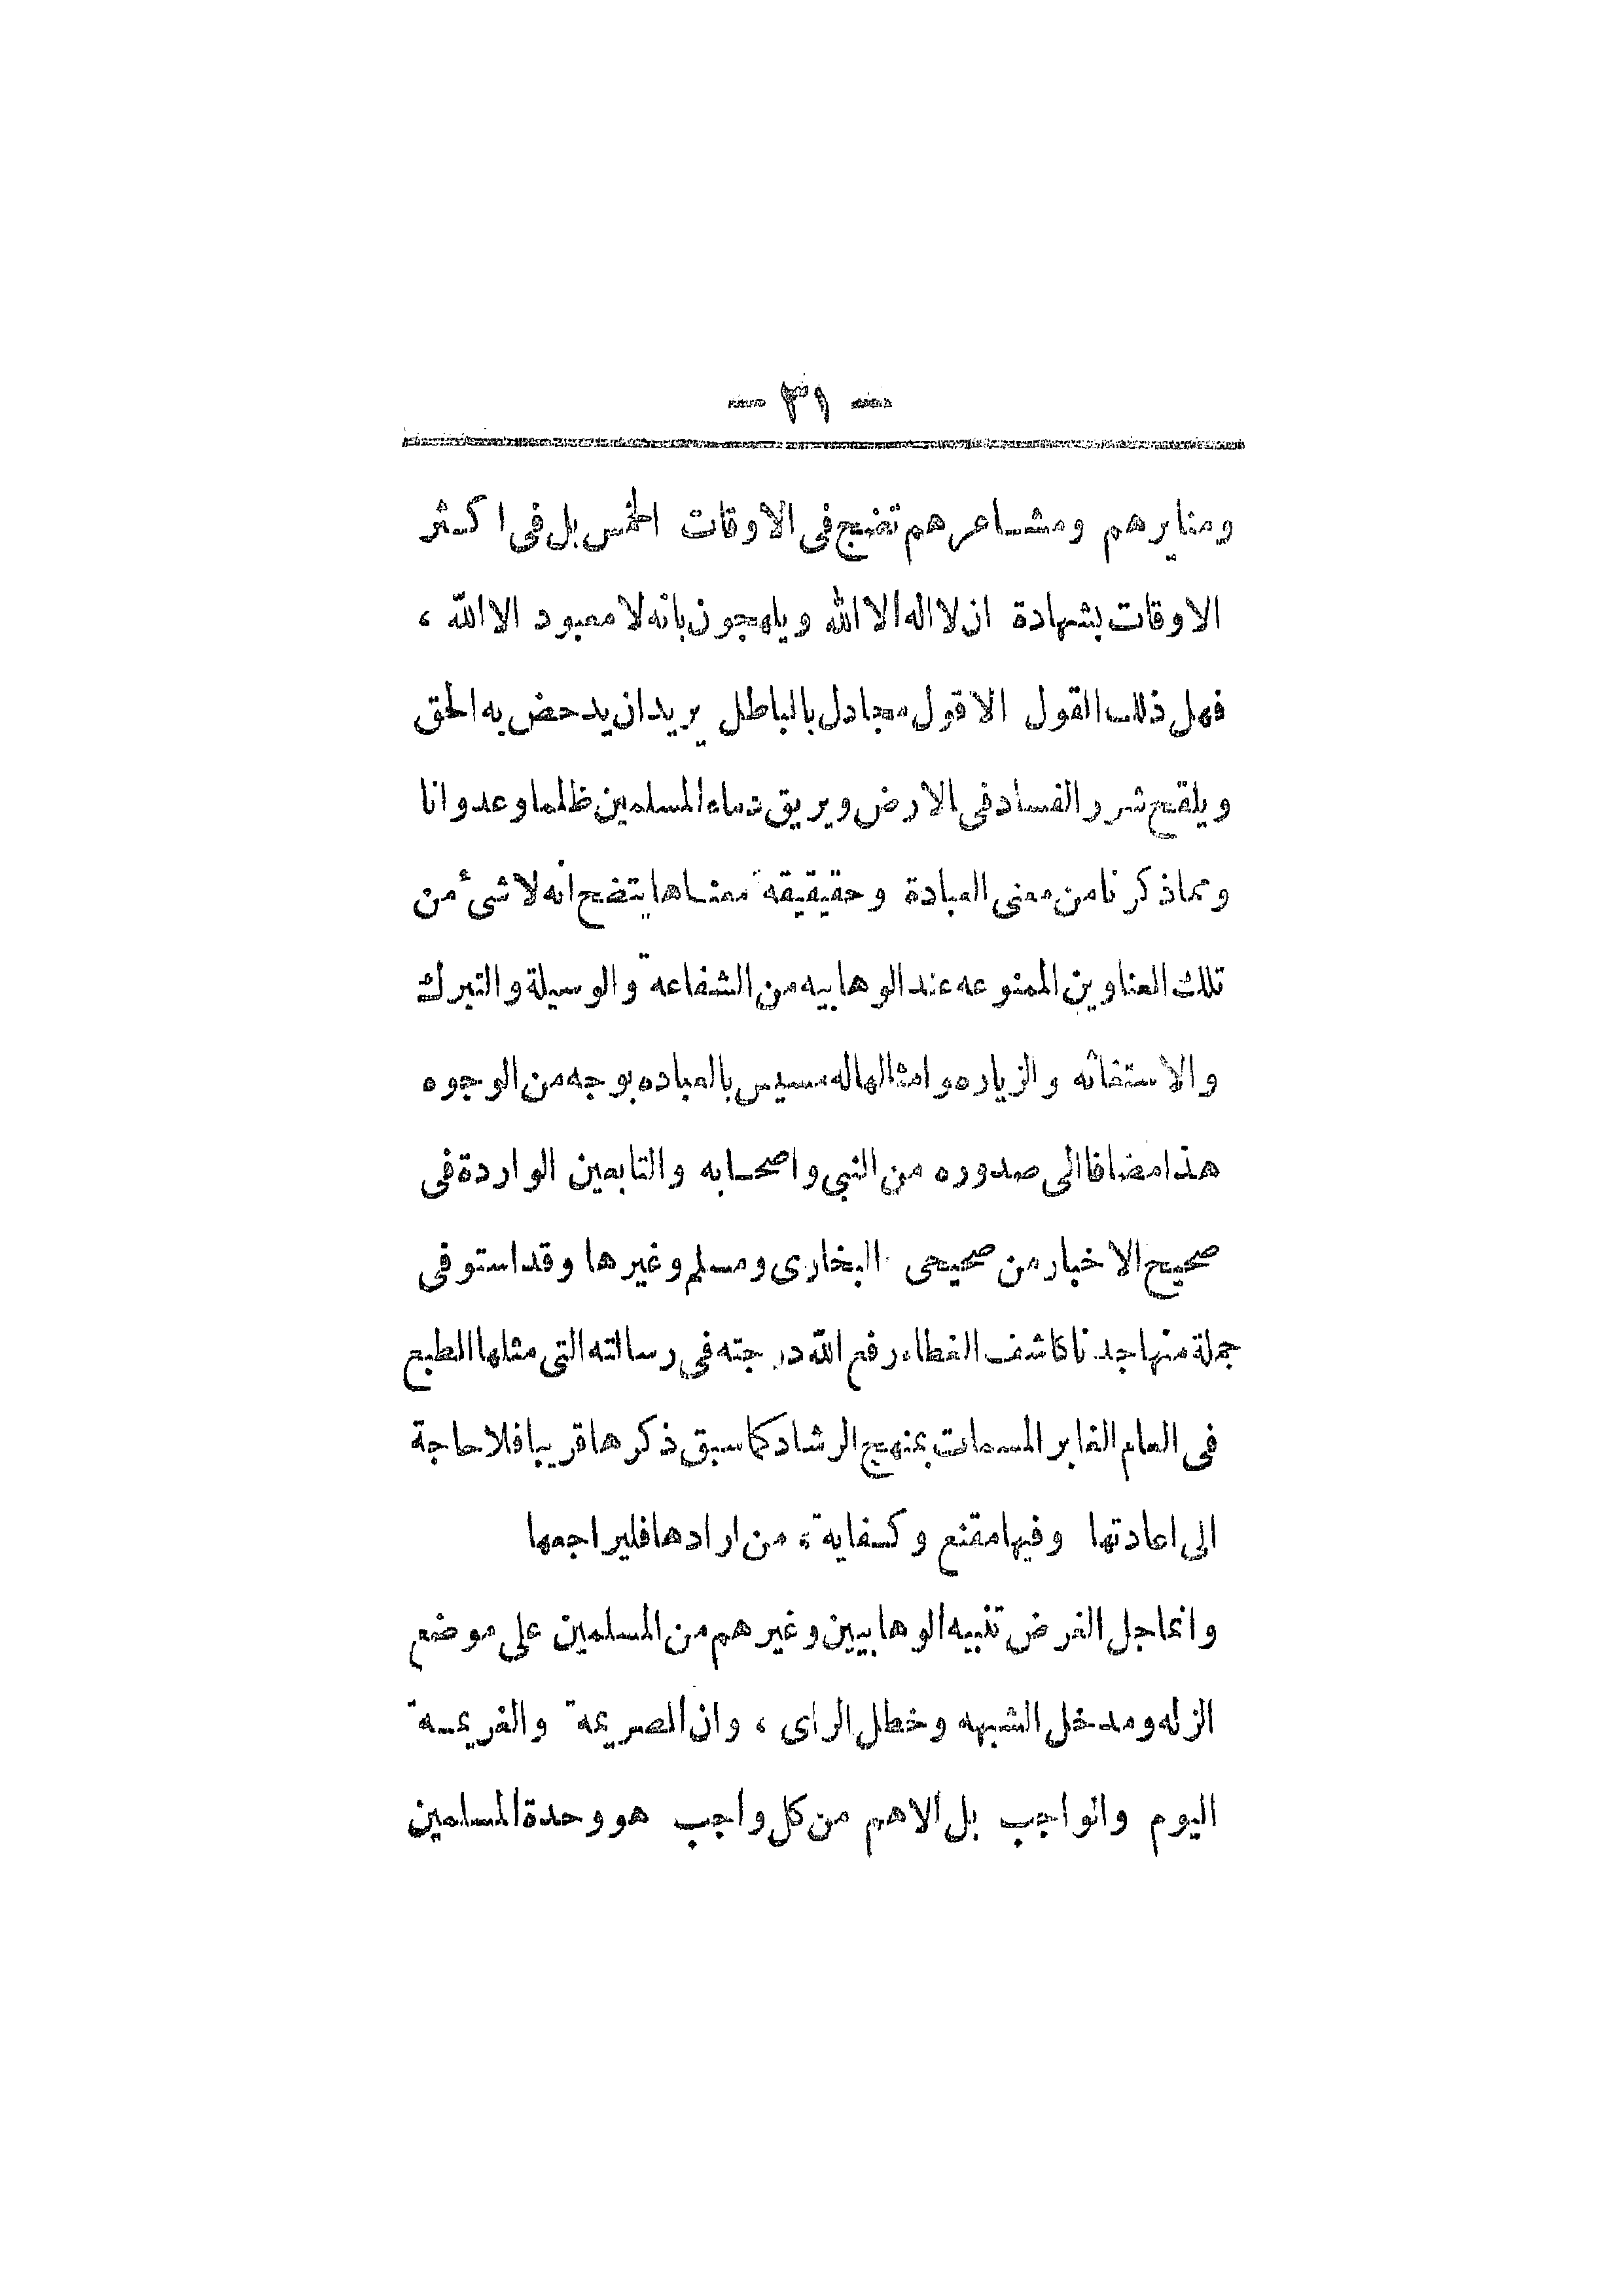 — ٣١ —
ومنابرهم ومشاعرهم تضج فى الاوقات الخمس بل فى اكثر
الاوقات بشهادة ان لا اله الا الله ويلهجون بانه لا معبود الا الله ،
فهل ذلك القول الا قول مجادل بالباطل يريد ان يدحض به الحق
ويلقح شرر الفساد فى الارض ويريق دماء المسلمين ظلما وعدوانا
ومما ذكرنا من معنى العبادة وحقيقيقة معناها يتضح انه لا شىء من
تلك العناوين الممنوعه عند الوهابيه من الشفاعة والوسيلة والتبرك
والاستغاثه والزياره وامثالها له مسيس بالعباده بوجه من الوجوه
هذا مضافا الى صدوره من النبى واصحابه والتابعين الواردة فى
صحيح الاخبار من صحيحى البخارى ومسلم وغيرها وقد استوفى
جملة منها جدنا كاشف الغطاء رفع الله درجته فى رسالته التى مثلها الطبع
فى العام الغابر المسمات بمنهج الرشاد كما سبق ذكرها قريبا فلا حاجة
الى اعادتها وفيها مقنع وكفاية ، من ارادها فليراجعها
وانما جل الغرض تنبيه الوهابيين وغيرهم من المسلمين على موضع
الزله ومدخل الشبهه وخطل الراى ، وان الصريمة والغريمة
اليوم والواجب بل الاهم من كل واجب هو وحدة المسلمين